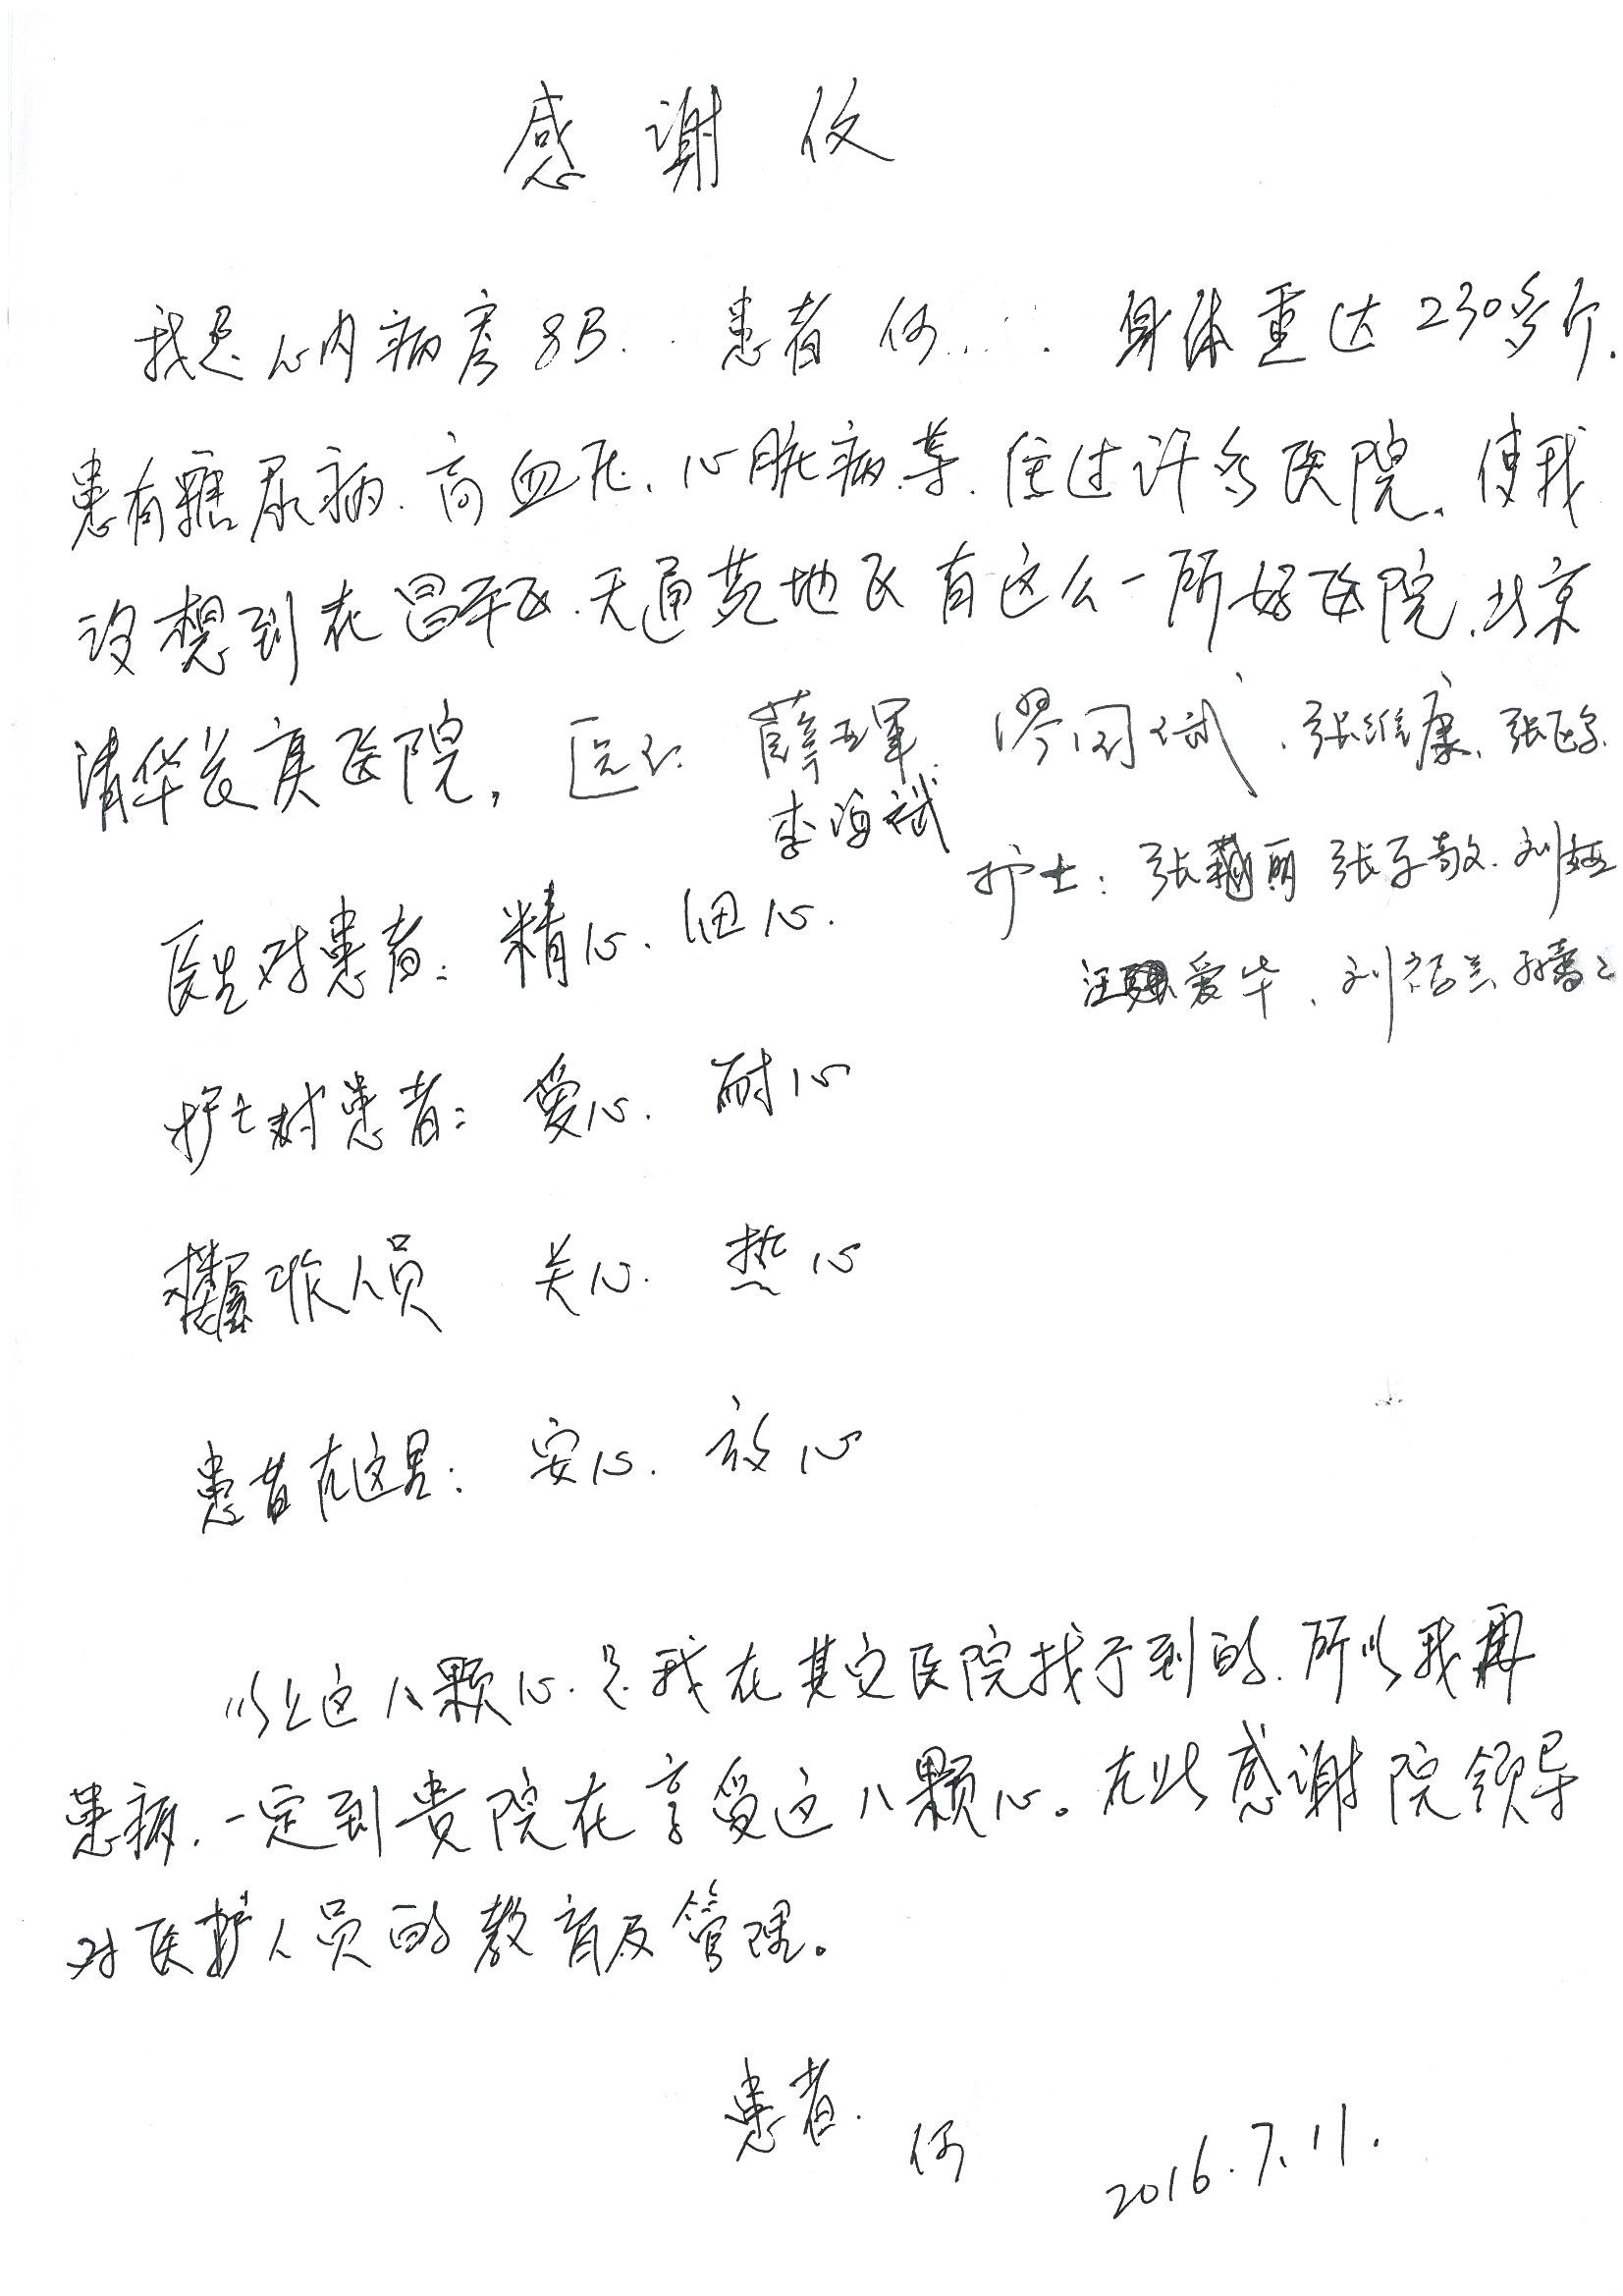 感谢信
我是心内病房8B. 患者 何 身体重达230多斤.
患有糖尿病.高血压.心脏病等.住过许多医院.使我
没想到在昌平区.天通苑地区有这么一所好医院.北京
清华长庚医院, 医生: 薛亚军. 缪国斌、张维康、张
李海斌
护士: 张丽 张子敬. 刘娅
医生对患者: 精心、细心.
汪爱华、刘
护士对患者: 爱心. 耐心
工作人员 关心. 热心
患者在这里: 安心. 放心
以上这八颗心.是我在其它医院找不到的.所以我再
患病.一定到贵院在享受这八颗心。在此感谢院领导
对医护人员的教育及管理。
患者. 何 2016.7.11.